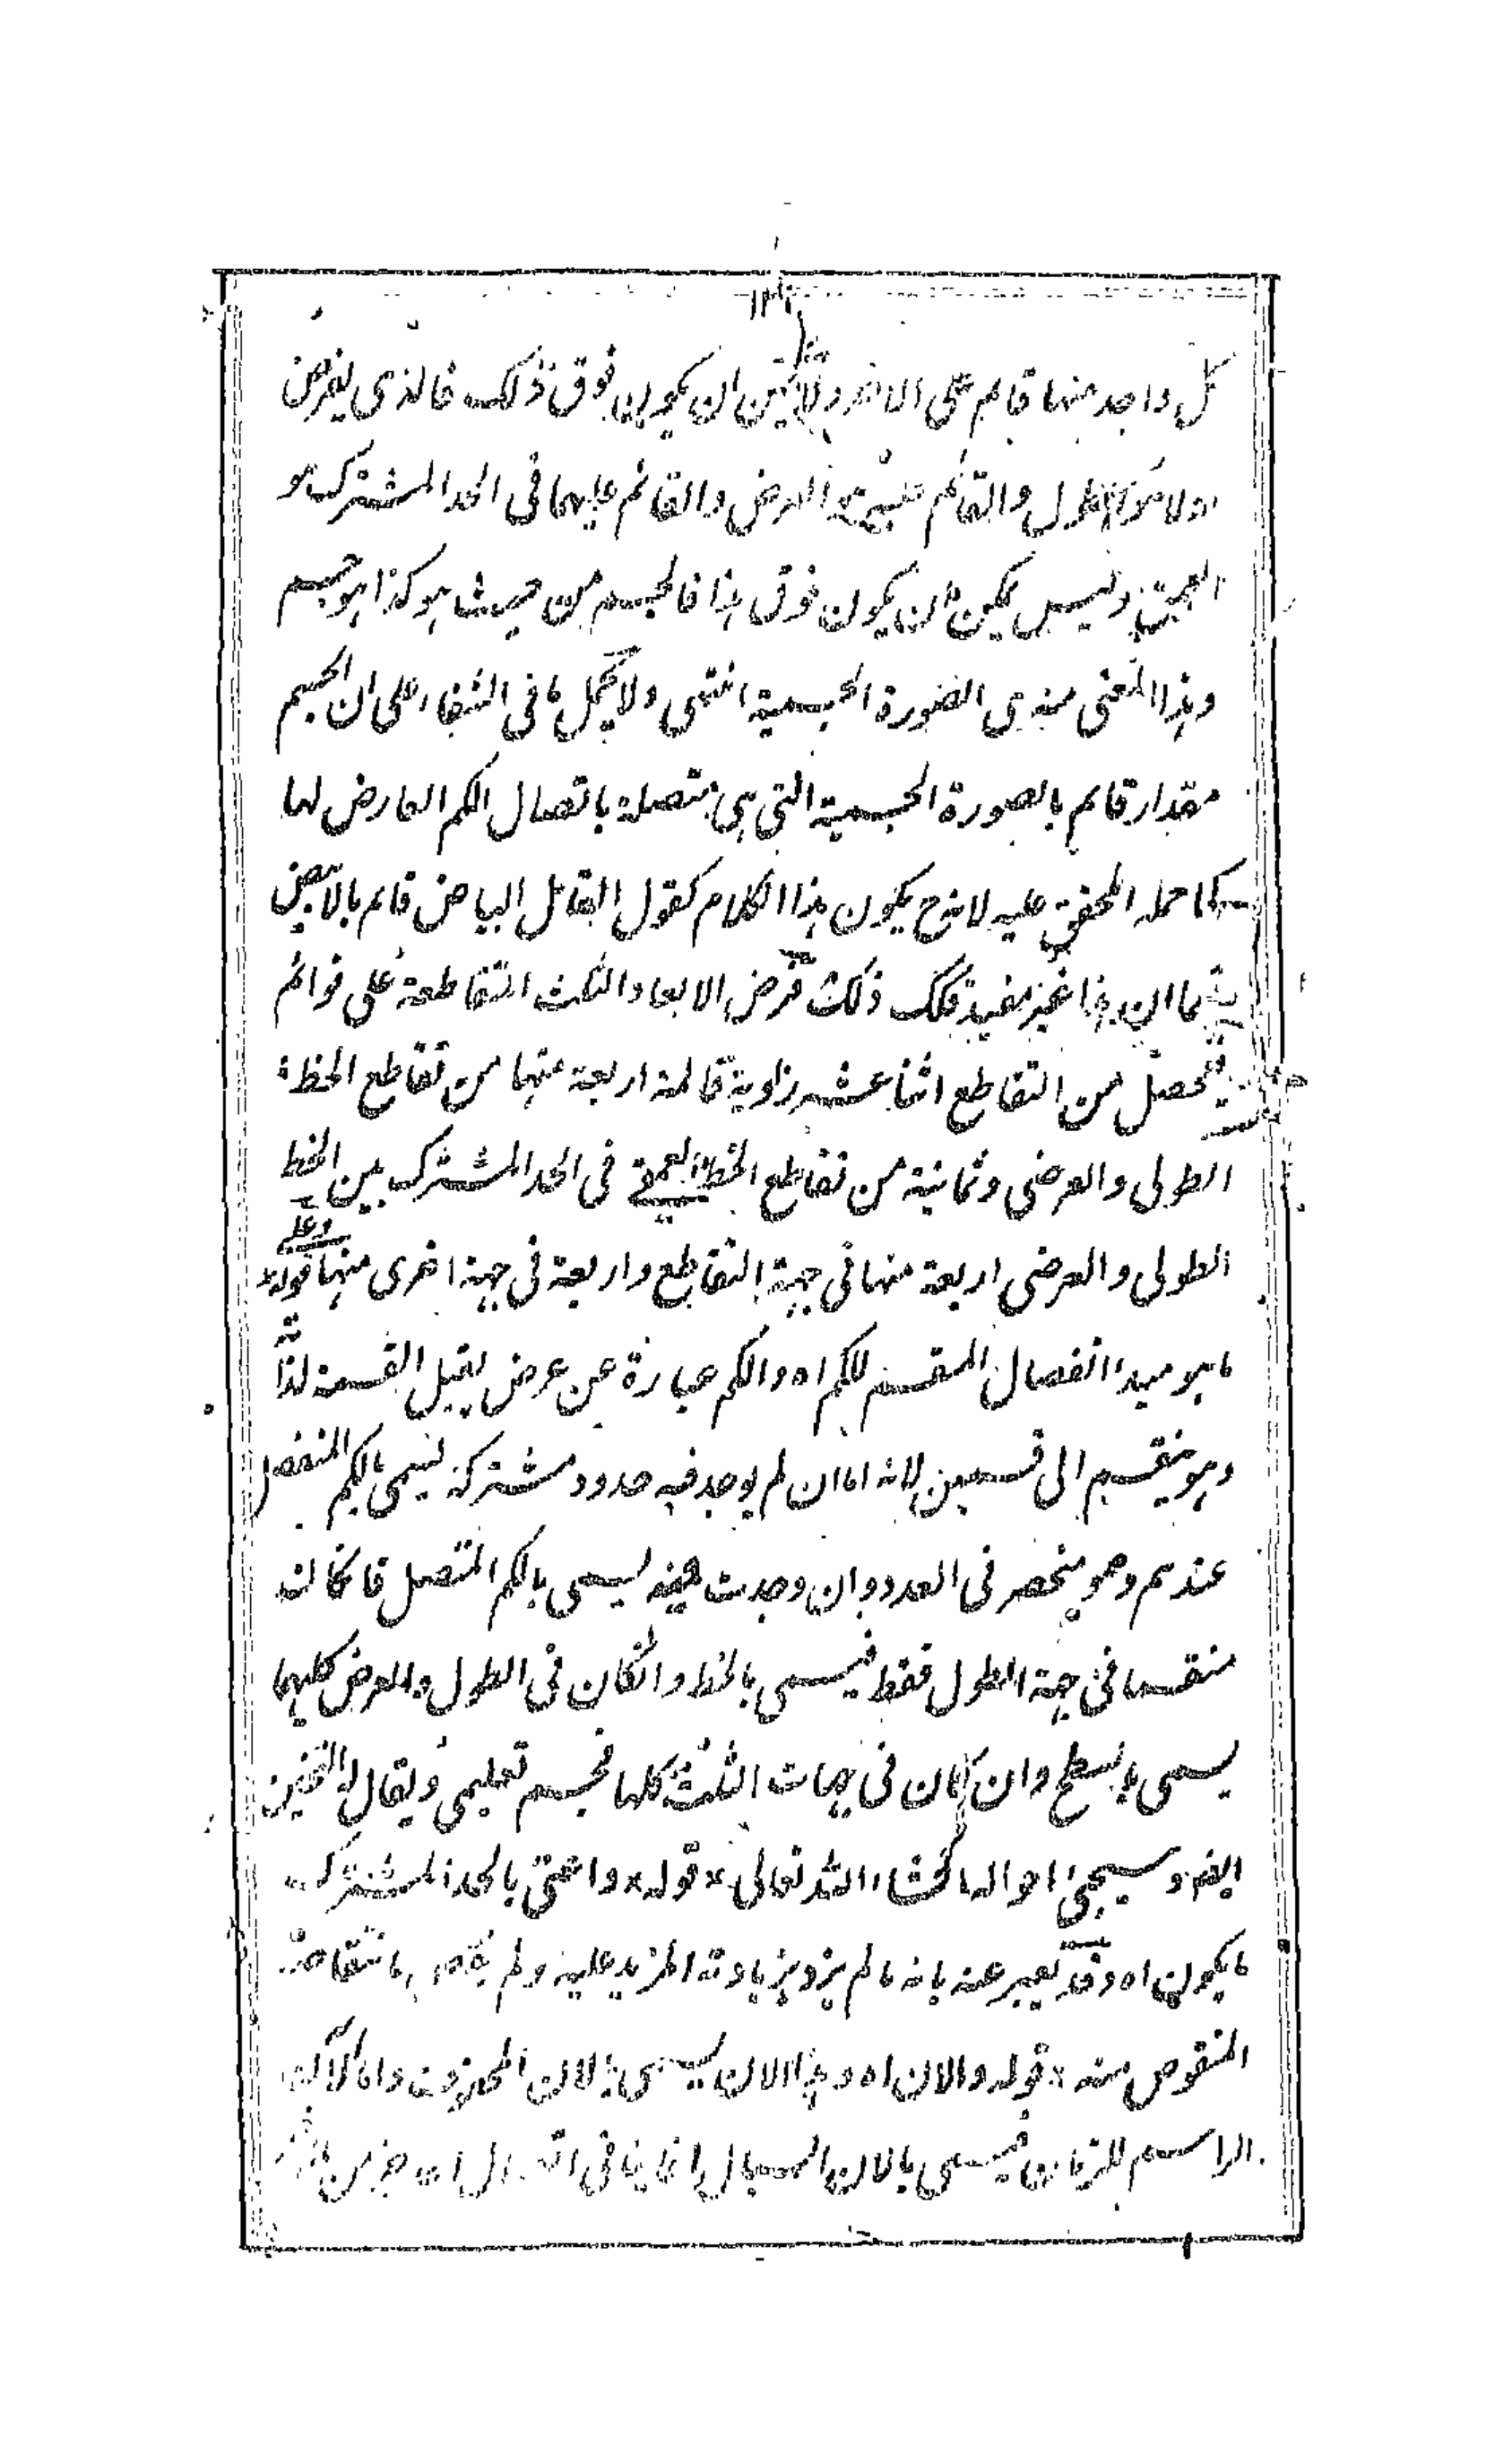 كل واحد منها قائم على الاخر ولا يمكن ان يكون فوق ذلك فالذى يفرض
اولا هو الطول والقائم عليه هو العرض والقائم عليهما فى الحد المشترك هو
العمق وليس يمكن ان يكون فوق هذا فالجسم من حيث هو كذا هو جسم
وهذا المعنى منه هى الصورة الجسمية انتهى ولا يحمل ما فى الشفاء على ان الجسم
مقدار قائم بالصورة الجسمية التى هى متصلة باتصال الكم العارض لها
كما حمله المحقق عليه لانه ح يكون هذا الكلام كقول القائل البياض قائم بالابيض
كما ان هذا غير مفيد فكك ذلك فرض الابعاد الثلث المتقاطعة على قوائم
يحصل من التقاطع اثنا عشر زاوية قائمة اربعة منها من تقاطع الخط
الطولى والعرضى وثمانية من تقاطع الخط العمقے فى الحد المشترك بين الخط
الطولى والعرضى اربعة منها فى جهة التقاطع واربعة فى جهة اخرى منها قوله وعلے
ما هو مبدا انفصال المنقسم للكم اه والكم عبارة عن عرض يقبل القسمة لذاته
وهو منقسم الى قسمين لانه اما ان لم يوجد فيه حدود مشتركة يسمى بالكم المنفصل
عندهم وهو منحصر فى العدد وان وجدت فيه يسمى بالكم المتصل فانكان
منقسما فى جهة الطول فقط فيسمى بالخط وانكان فى الطول والعرض كليهما
يسمى بالسطح وان كان فى جهات الثلث كلها فجسم تعليمى ويقال له الثخين
ايضا وسيجئ احواله انشاء الله تعالى * قوله * واعنى بالحد المشترك
ما يكون اه وقد يعبر عنه بانه ما لم يزد بزيادته المزيد عليه ولم ينقص بانتقاصه
المنقوص منه * قوله والان اه وهذا الان يسمى بالان المحذوف واما الان
الراسم للزمان فيسمى بالان السيال